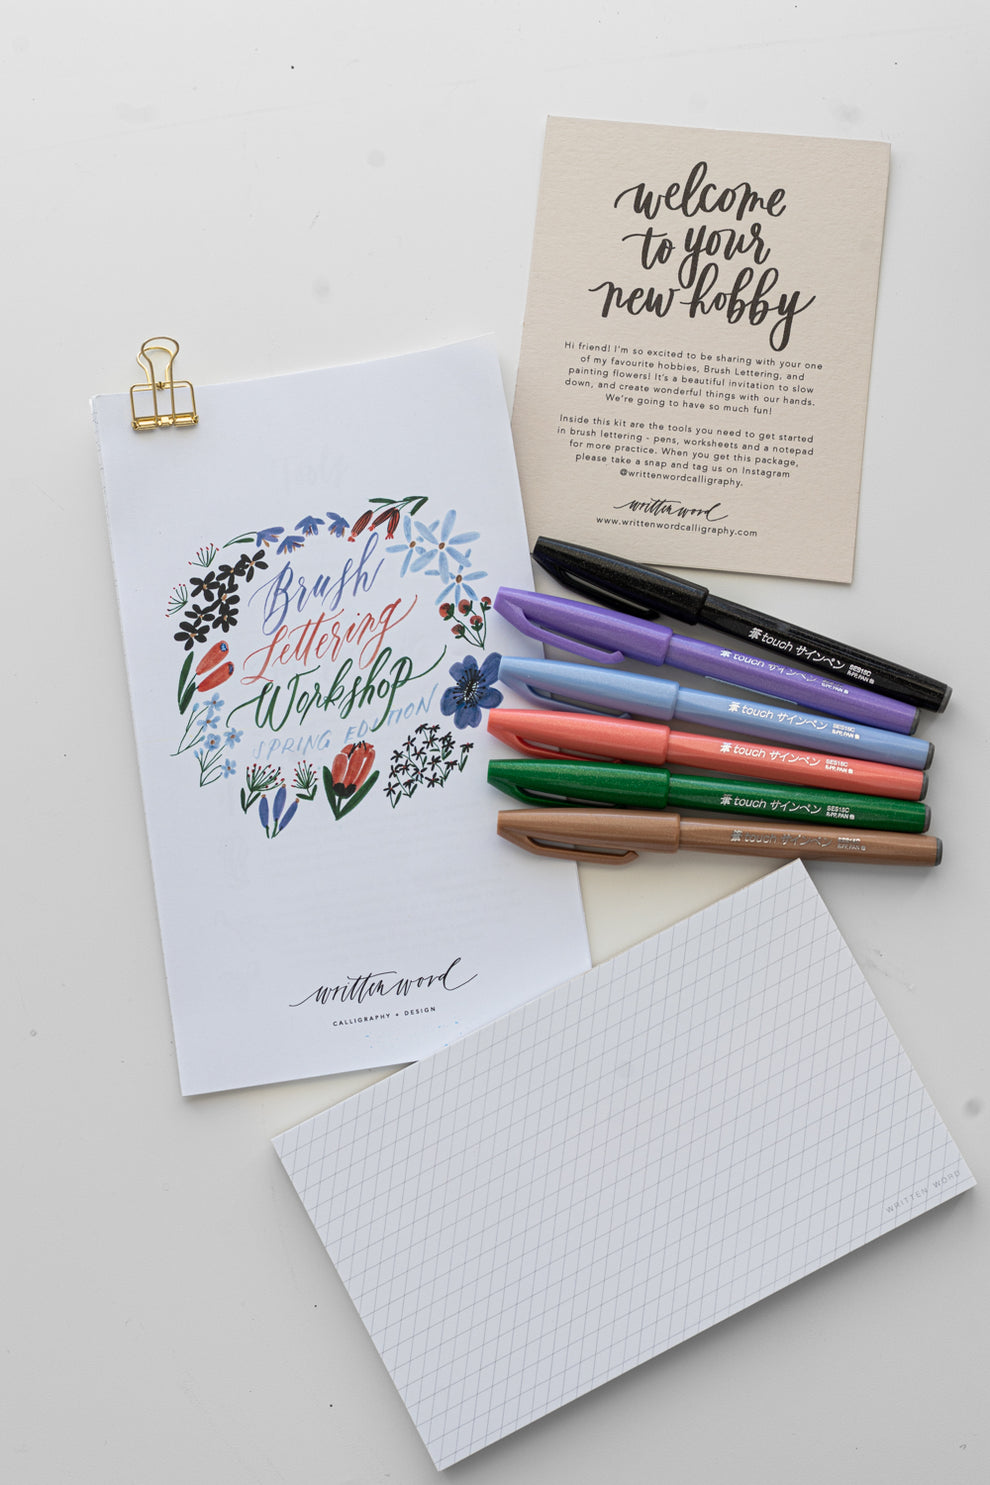 welcome
to your
new hobby
Hi friend! I'm so excited to be sharing with your one
of my favourite hobbies, Brush Lettering, and
painting flowers! It's a beautiful invitation to slow
down, and create wonderful things with our hands.
We're going to have so much fun!
Inside this kit are the tools you need to get started
in brush lettering - pens, worksheets and a notepad
for more practice. When you get this package,
please take a snap and tag us on Instagram
@writtenwordcalligraphy.
written word
www.writtenwordcalligraphy.com
Brush
Lettering
Workshop
SPRING EDITION
written word
CALLIGRAPHY + DESIGN
touch サインペン SES15C
touch サインペン SES15C
touch サインペン SES15C
touch サインペン SES15C
touch サインペン SES15C
touch サインペン
WRITTEN WORD